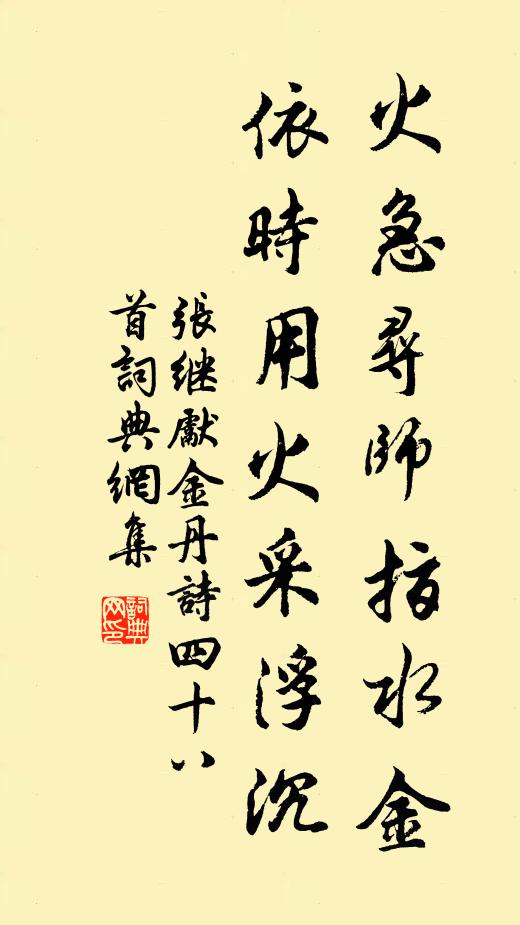 火急尋師指水金
依時用火采浮沉
張继獻金丹詩四十八
首詞典網集
詞典
网印